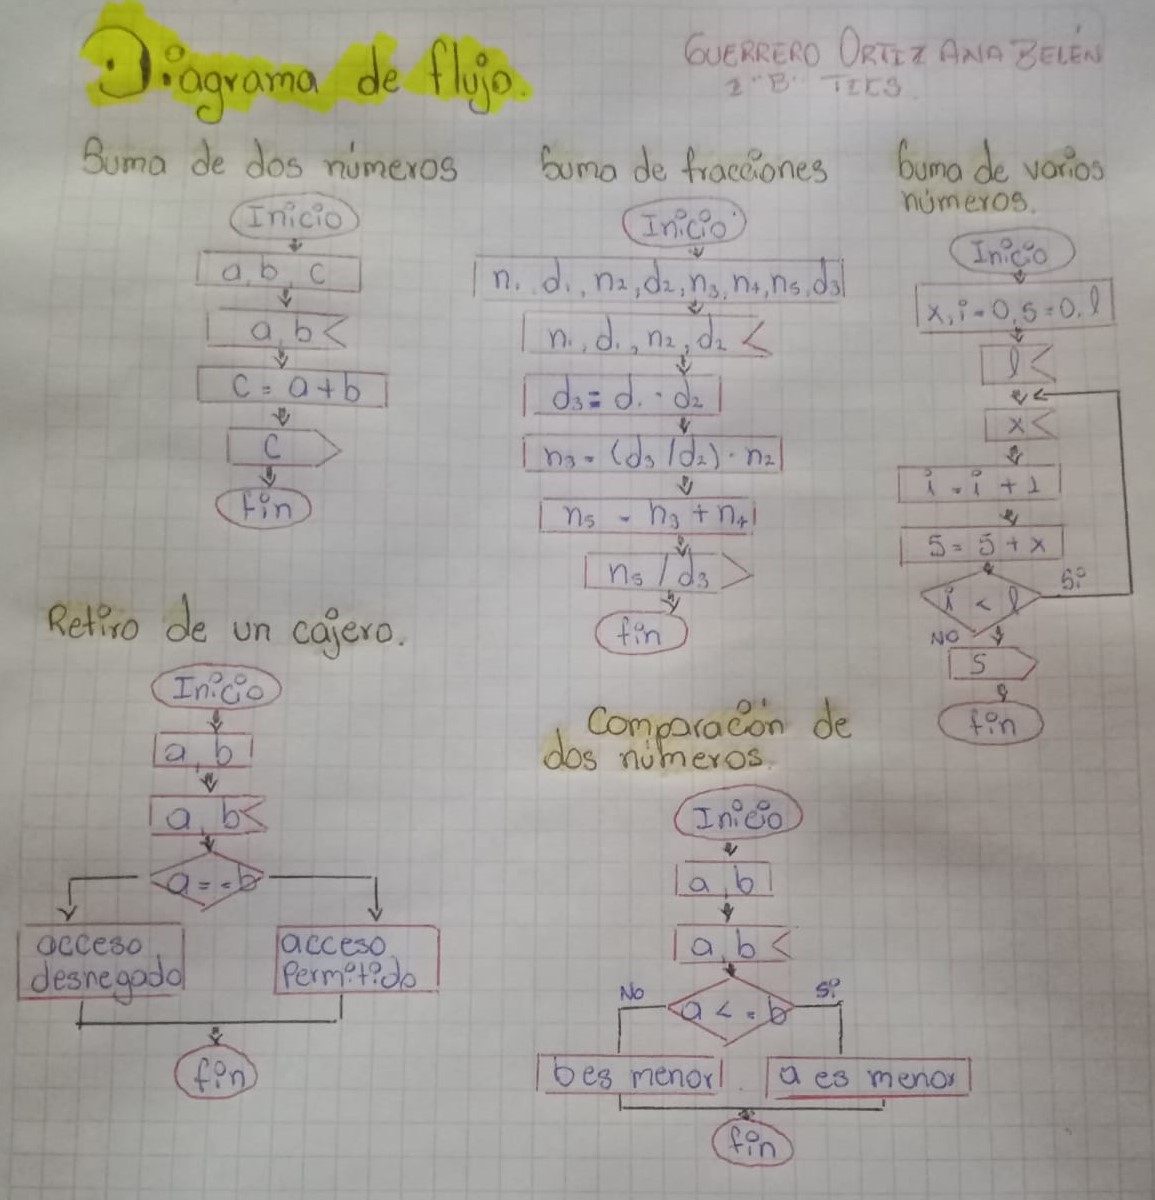 Diagrama de flujo.
GUERRERO ORTIZ ANA BELÉN
1 "B" TICS.
Suma de dos números
Inicio
a, b, c
a, b <
c = a + b
c
fin
Suma de fracciones
Inicio
n₁, d₁, n₂, d₂, n₃, n₄, n₅, d₃
n₁, d₁, n₂, d₂ <
d₃ = d₁ · d₂
n₃ = (d₃ / d₂) · n₂
n₅ = n₃ + n₄
n₅ / d₃
fin
Suma de varios
números.
Inicio
x, i = 0, s = 0, l
l <
x <
i = i + 1
S = S + x
i < l
Si
NO
S
fin
Retiro de un cajero.
Inicio
a, b
a, b <
a = = b
acceso
desnegado
acceso
Permitido
fin
Comparación de
dos números.
Inicio
a, b
a, b <
No
a < = b
Si
b es menor
a es menor
fin